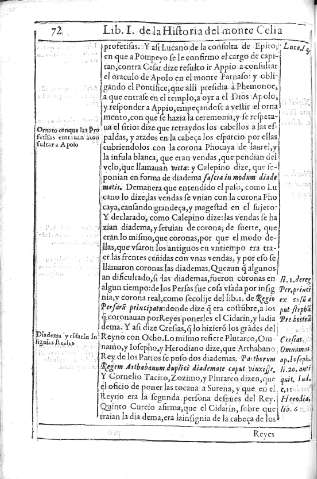 72 Lib. I. de la Historia del monte Celia
profetisas. Y asi Lucano de la consulta de Epiro,
en que a Pompeyo se le confirmo el cargo de capi-
tan, contra Cesar dize resulto ir Appio a consultar
el oraculo de Apolo en el monte Parnaso: y obli-
gando el Pontifice, que alli presidia à Phemonoe,
a que entrase en el templo, a oyr a el Dios Apolo,
y responder a Appio, empeçandose a vestir el orna-
mento, con que se hazia la ceremonia, y se respeta-
ua el sitio: dize que retraydos los cabellos a las es-
paldas, y atados en la cabeça los
cubriendolos con la corona Phocaya de laurel, y
la insula blanca, que eran vendas, que pendian del
velo, que llamauan vita: y Calepino dize, que se-
ponian en forma de diadema fascia in modum diade
matis. De manera que entendido el paso, como Lu
cano lo dize, las vendas se vnian con la corona Pho
caya, causando grandeça, y magestad en el sujeto.
Y declarado, como Calepino dize: las vendas se ha
zian diadema, y seruian de corona; de suerte, que
eran lo mismo, que coronas, por que el modo de-
llas, que vsaron los antiguos en vn tiempo era tra-
er las frentes ceñidas con vnas vendas, y por eso se
llamaron coronas: las diademas. Que aun q̃ algunos
an dificultado, si las diademas, fueron coronas en
algun tiempo: de los Persas fue cosa vsada por insig
nia, y corona real, como se colije del lib. 1. de Regio
Persarũ principatu: donde dize q̃ era costũbre, a los
q̃ coronauan por Reyes ponerles el Cidarin, y la dia
dema. Y asi dize Cresias, q̃ lo hizierõ los grãdes del
Reyno con Ocho. Lo mismo refiere Plutarco, Om-
nanio, y Iosepho, y Herodiano dize, que Arthabano
Rey de los Partos se puso dos diademas. Parthorum
Regem Arthabanum duplici diademate caput vinxisse,
Y Cornelio Tacito, Zozimo, y Plutarco dizen, que
el oficio de poner las tocaua a Surena, y que en el
Reyno era la segunda persona despues del Rey.
Quinto Curcio afirma, que el Cidarin, sobre que
traian la diadema, era la insignia de la cabeça de los
Reyes
Ornato con que las Pro
fetisas entrauan a con
sultar a Apolo
Diadema y cidarin in
signias Reales